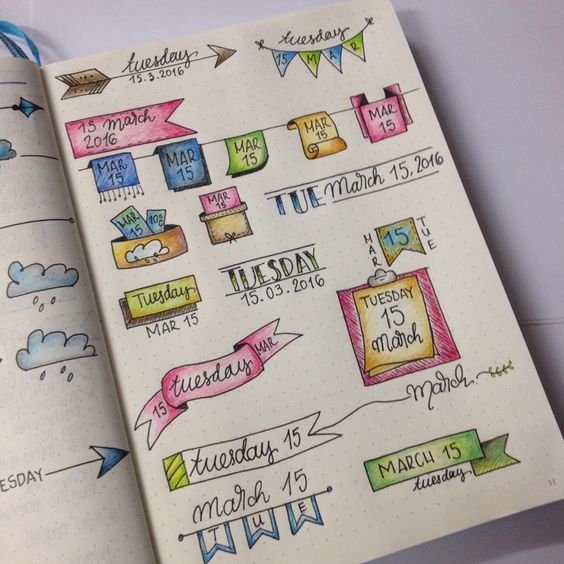 tuesday
15.3.2016
tuesday
15 MAR
15 march
2016
MAR
15
MAR
15
MAR
15
MAR
15
MAR
15
MAR
15
MAR
15
TUE March 15. 2016
MAR
15
TUE
TUESDAY
15.03.2016
Tuesday
MAR 15
TUESDAY
15
March
15 tuesday MAR
march
tuesday 15
MARCH 15
tuesday
march 15
TUE
ESDAY